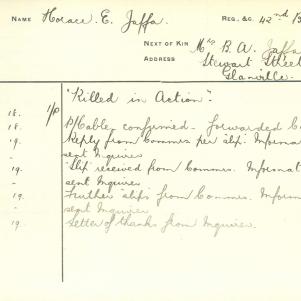 NAME Horace. E. Jaffa. REG. &C. 42nd B
NEXT OF KIN Mrs B. A. Jaffa
ADDRESS Stewart Street
Glanville.
"Killed in Action".
18. P/Cable confirmed. Forwarded C
19. Reply from Commrs per slip. Informa
- sent Inquirer
19. Slip received from Commrs. Informat
- sent Inquirer
19. Further slips from Commrs. Inform
- sent Inquirer
19. Letter of thanks from Inquirer.